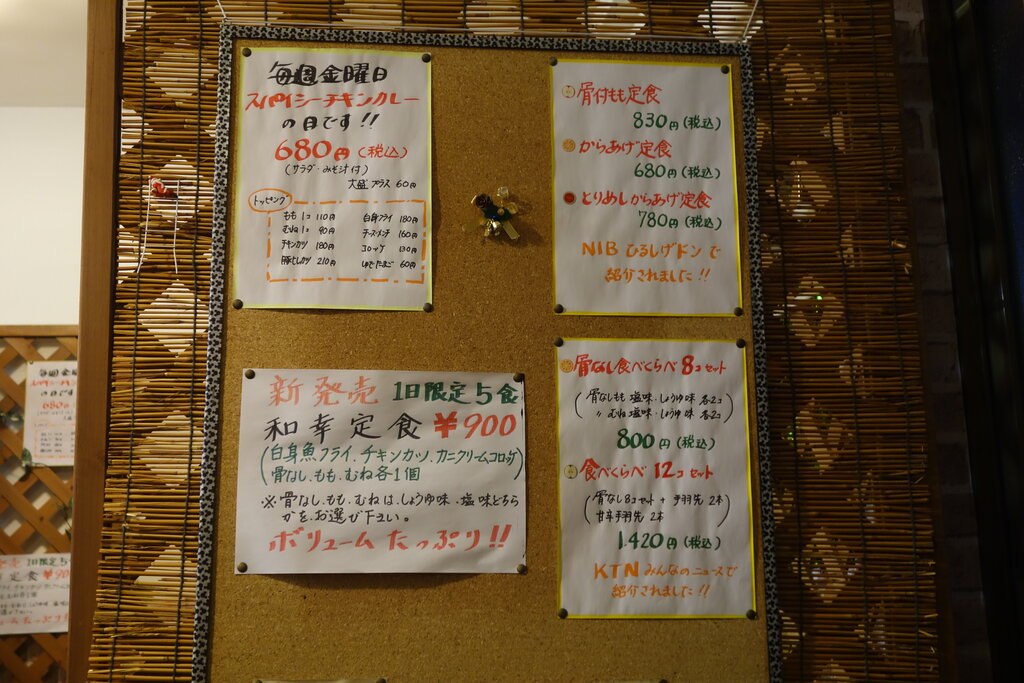 毎週金曜日
スパイシーチキンカレー
の日です!!
680円(税込)
(サラダ・みそ汁付)
大盛プラス 60円
トッピング
もも1コ 110円
むね1コ 90円
チキンカツ 180円
豚ヒレカツ 210円
白身フライ 180円
チーズメンチ 160円
コロッケ 130円
ゆでたまご 60円
骨付もも定食
830円(税込)
からあげ定食
680円(税込)
とりめしからあげ定食
780円(税込)
NIB ひるじげドン で
紹介されました!!
新発売 1日限定5食
和幸定食 ¥900
(白身魚フライ、チキンカツ、カニクリームコロッケ
骨なし、もも、むね各1個)
※骨なし、もも、むねは、しょうゆ味、塩味どちら
かを、お選び下さい。
ボリュームたっぷり!!
骨なし食べくらべ 8コセット
(骨なしもも 塩味・しょうゆ味 各2コ
〃 むね 塩味・しょうゆ味 各2コ)
800円(税込)
食べくらべ 12コセット
(骨なし8コセット + 手羽先 2本
甘辛手羽先 2本)
1,420円(税込)
KTN みんなのニュースで
紹介されました!!
毎週金
スパイシーチキン
の日です
680
売 1日限定5
定食 ¥90